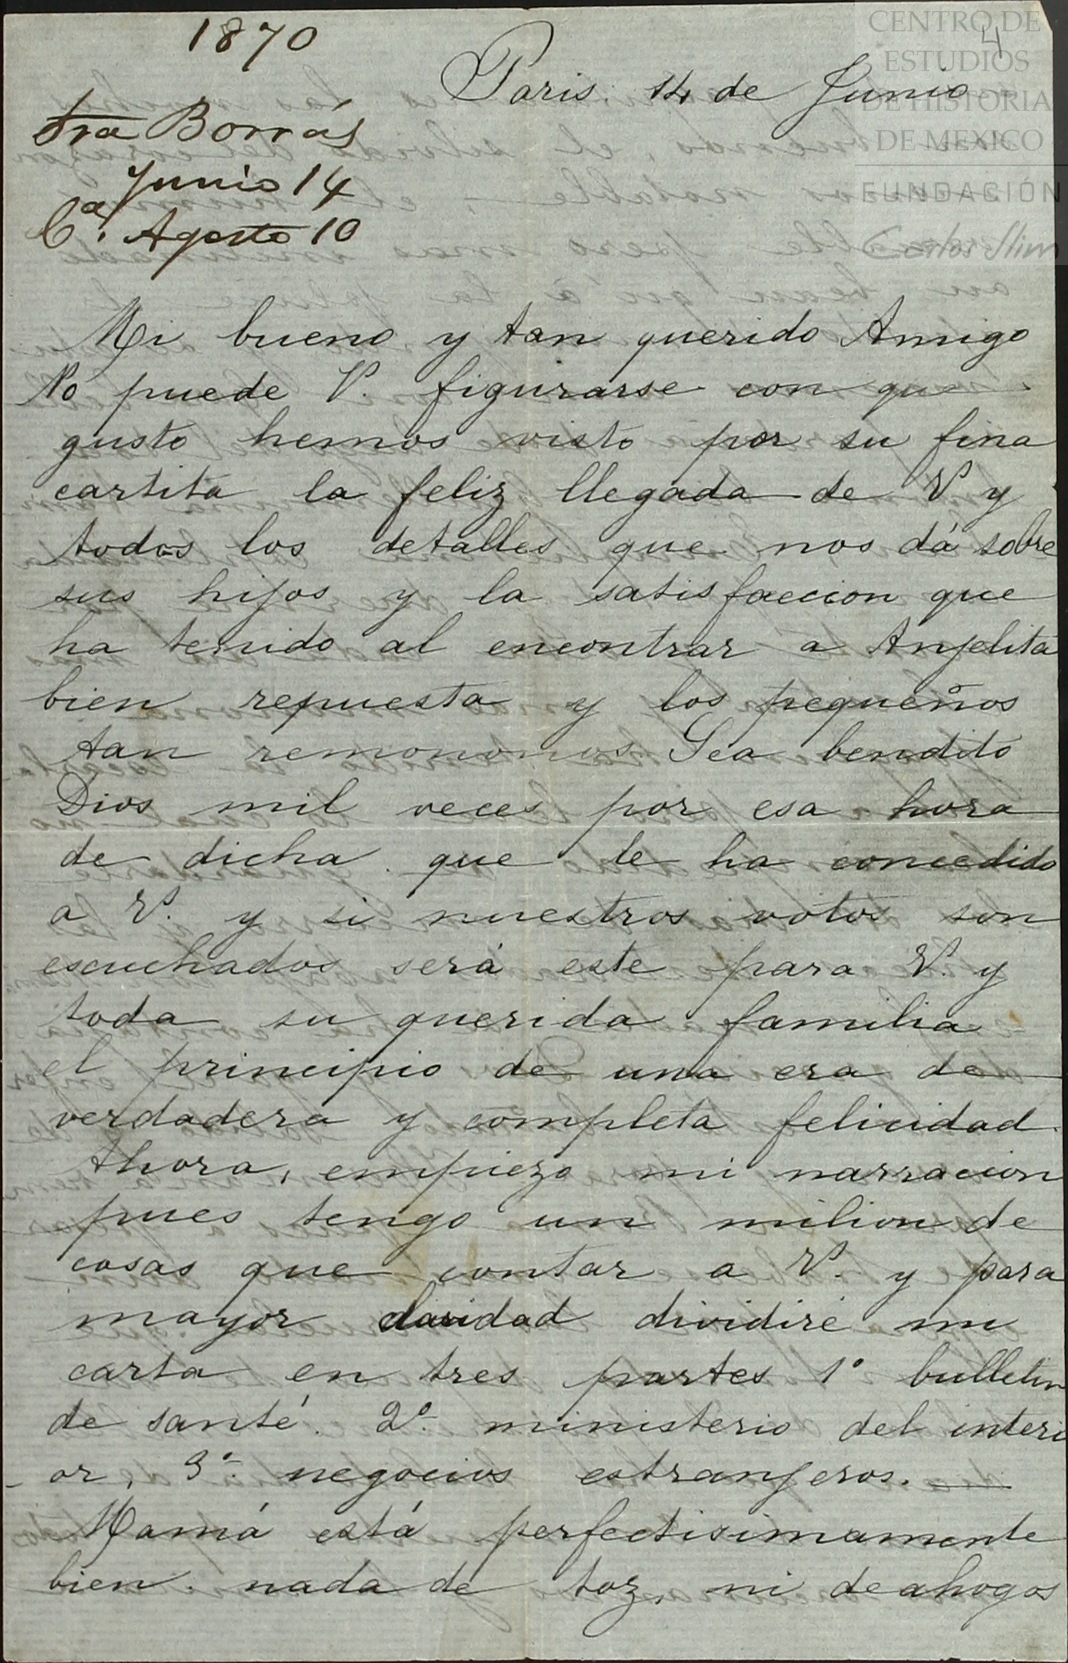 1870
4
CENTRO DE
ESTUDIOS
DE HISTORIA
DE MEXICO
FUNDACIÓN
Carlos Slim
Paris. 14 de Junio
Sra Borrás
Junio 14
Ca. Agosto 10
Mi bueno y tan querido Amigo
No puede V. figurarse con que
gusto hemos visto por su fina
cartita la feliz llegada de V y
todos los detalles que nos dá sobre
sus hijos y la satisfaccion que
ha tenido al encontrar a Anjelita
bien repuesta y los pequeños
tan remononos Sea bendito
Dios mil veces por esa hora
de dicha que le ha concedido
a V. y si nuestros votos son
escuchados será este para V. y
toda su querida familia
el principio de una era de
verdadera y completa felicidad.
Ahora, empiezo mi narracion
pues tengo un milion de
cosas que contar a V. y para
mayor claridad dividiré mi
carta en tres partes 1º bulletin
de santé. 2º ministerio del interi
-or, 3º negocios estranjeros.
Mamá está perfectisimamente
bien. nada de toz, ni de ahogos